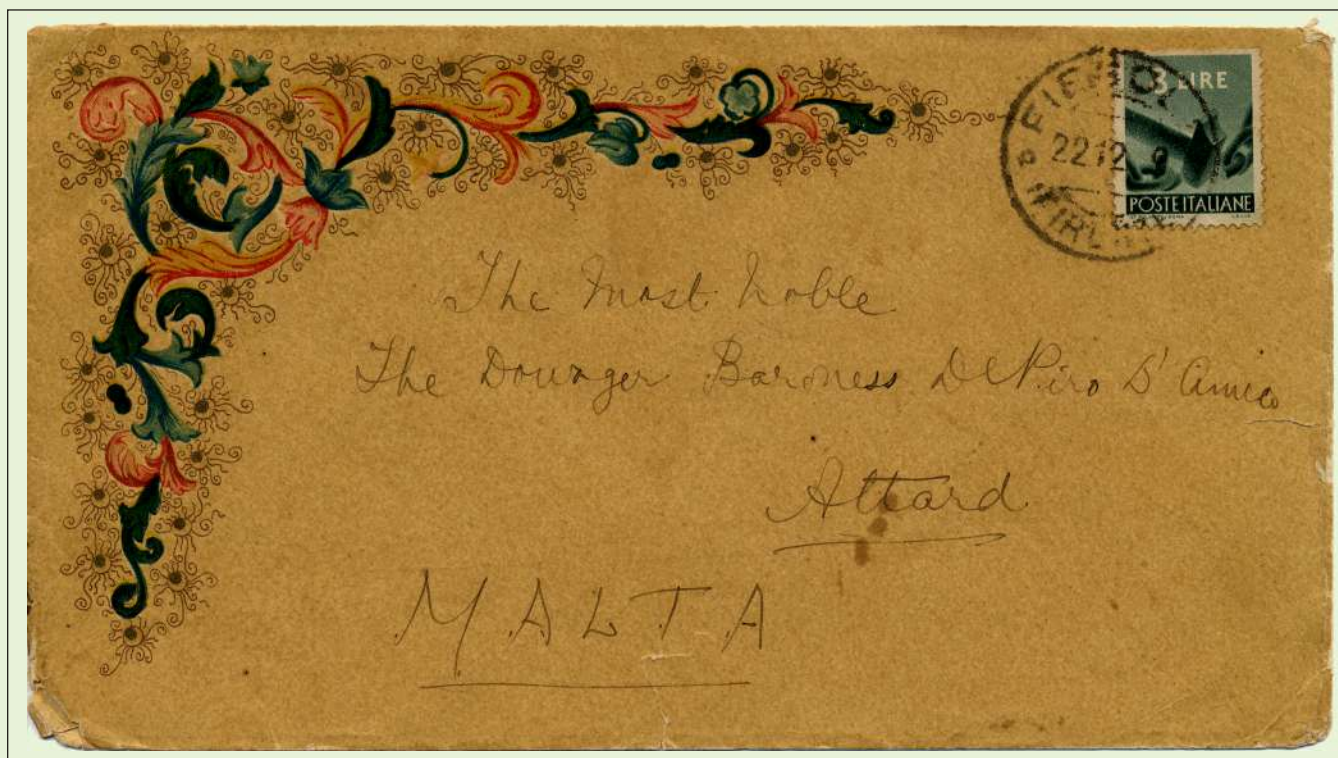 3 LIRE
22 12
POSTE ITALIANE
The Most Noble
The Dowager Baroness De Piro D'Amico
Attard
MALTA